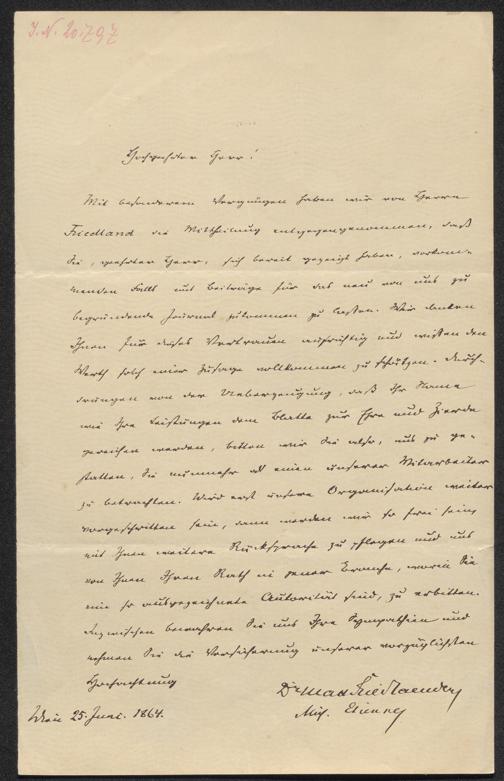 I.N. 20.797
Hochgeehrter Herr!
Mit besonderem Vergnügen haben wir von Herrn
Friedland die Mittheilung entgegengenommen, daß
Sie, geehrter Herr, sich bereit gezeigt haben, vorkom-
menden Falls uns Beiträge für das neu von uns zu
begründende Journal zukommen zu lassen. Wir danken
Ihnen für dieses Vertrauen aufrichtig und wissen den
Werth solch einer Zusage vollkommen zu schätzen. Durch-
drungen von der Ueberzeugung, daß Ihr Name
wie Ihre Leistungen dem Blatte zur Ehre und Zierde
gereichen werden, bitten wir Sie, uns zu ge-
statten, Sie nunmehr als einen unserer Mitarbeiter
zu betrachten. Wird erst unsere Organisation weiter
vorgeschritten sein, dann werden wir so frei sein
mit Ihnen weitere Rücksprache zu pflegen und uns
von Ihnen Ihren Rath in jener Branche, worin Sie
eine so ausgezeichnete Autorität sind, zu erbitten.
Inzwischen bewahren Sie uns Ihre Sympathien und
nehmen Sie die Versicherung unserer vorzüglichsten
Hochachtung
Dr Max Friedlaender
Mich. Etienne
Wien 25. Juni. 1864.